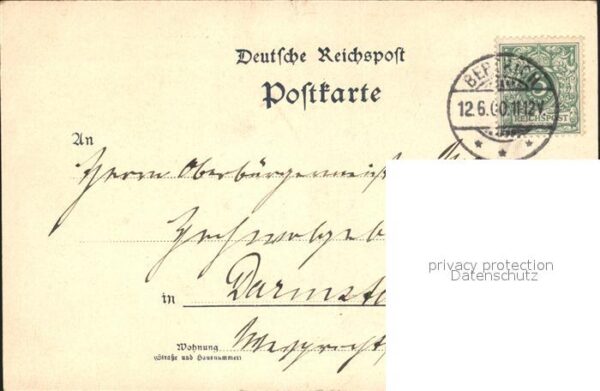 Deutsche Reichspost
Postkarte
12.6.00.11-12V
REICHSPOST
An
Herrn Oberbürgermeist
Hochwohlgeb
in Darmst
Wohnung
(Straße und Hausnummer)
privacy protection
Datenschutz